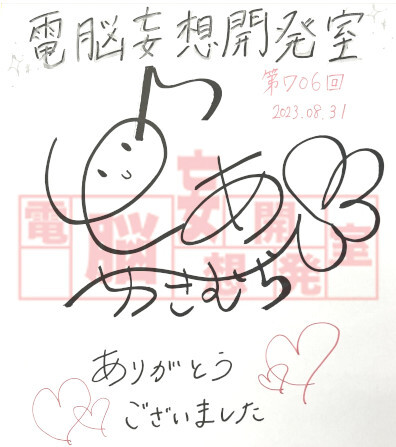 電脳妄想開発室
第706回
2023.08.31
あ
電脳妄想開発室
ありがとう
ございました